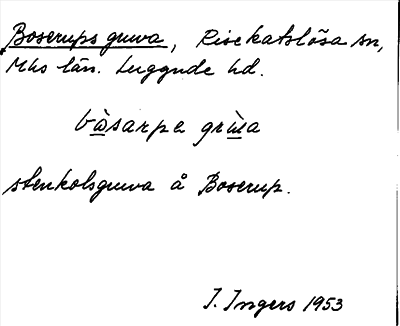 Boserups gruva, Risekatslösa sn,
Mhs län. Luggude hd.
bòsarpa grùva
stenkolsgruva å Boserup.
I. Ingers 1953